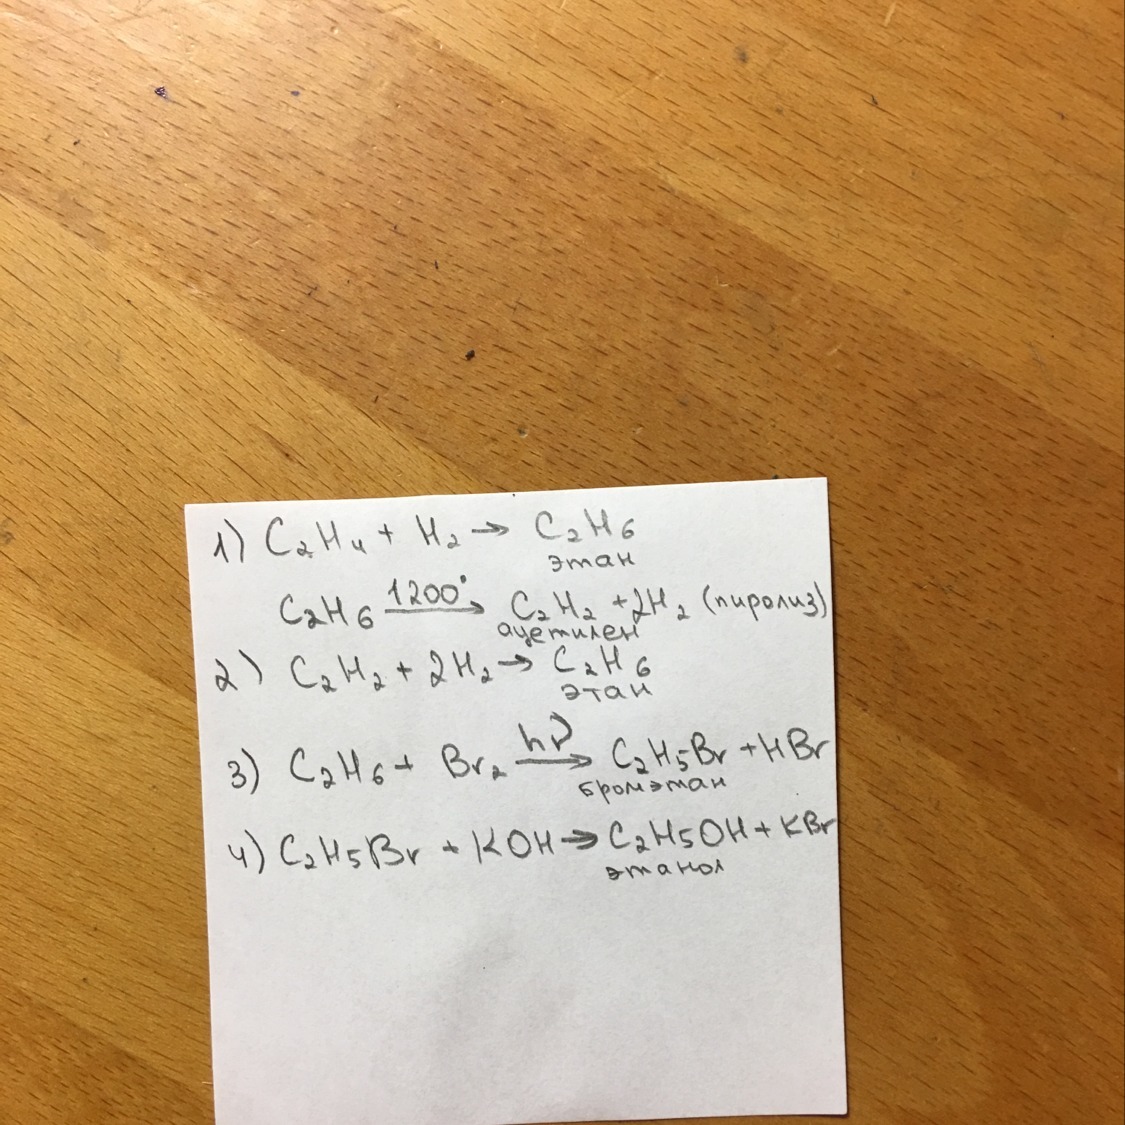 1) C₂H₄ + H₂ → C₂H₆
этан
1200°
C₂H₆ → C₂H₂ + 2H₂ (пиролиз)
ацетилен
2) C₂H₂ + 2H₂ → C₂H₆
этан
hν
3) C₂H₆ + Br₂ → C₂H₅Br + HBr
бромэтан
4) C₂H₅Br + KOH → C₂H₅OH + KBr
этанол